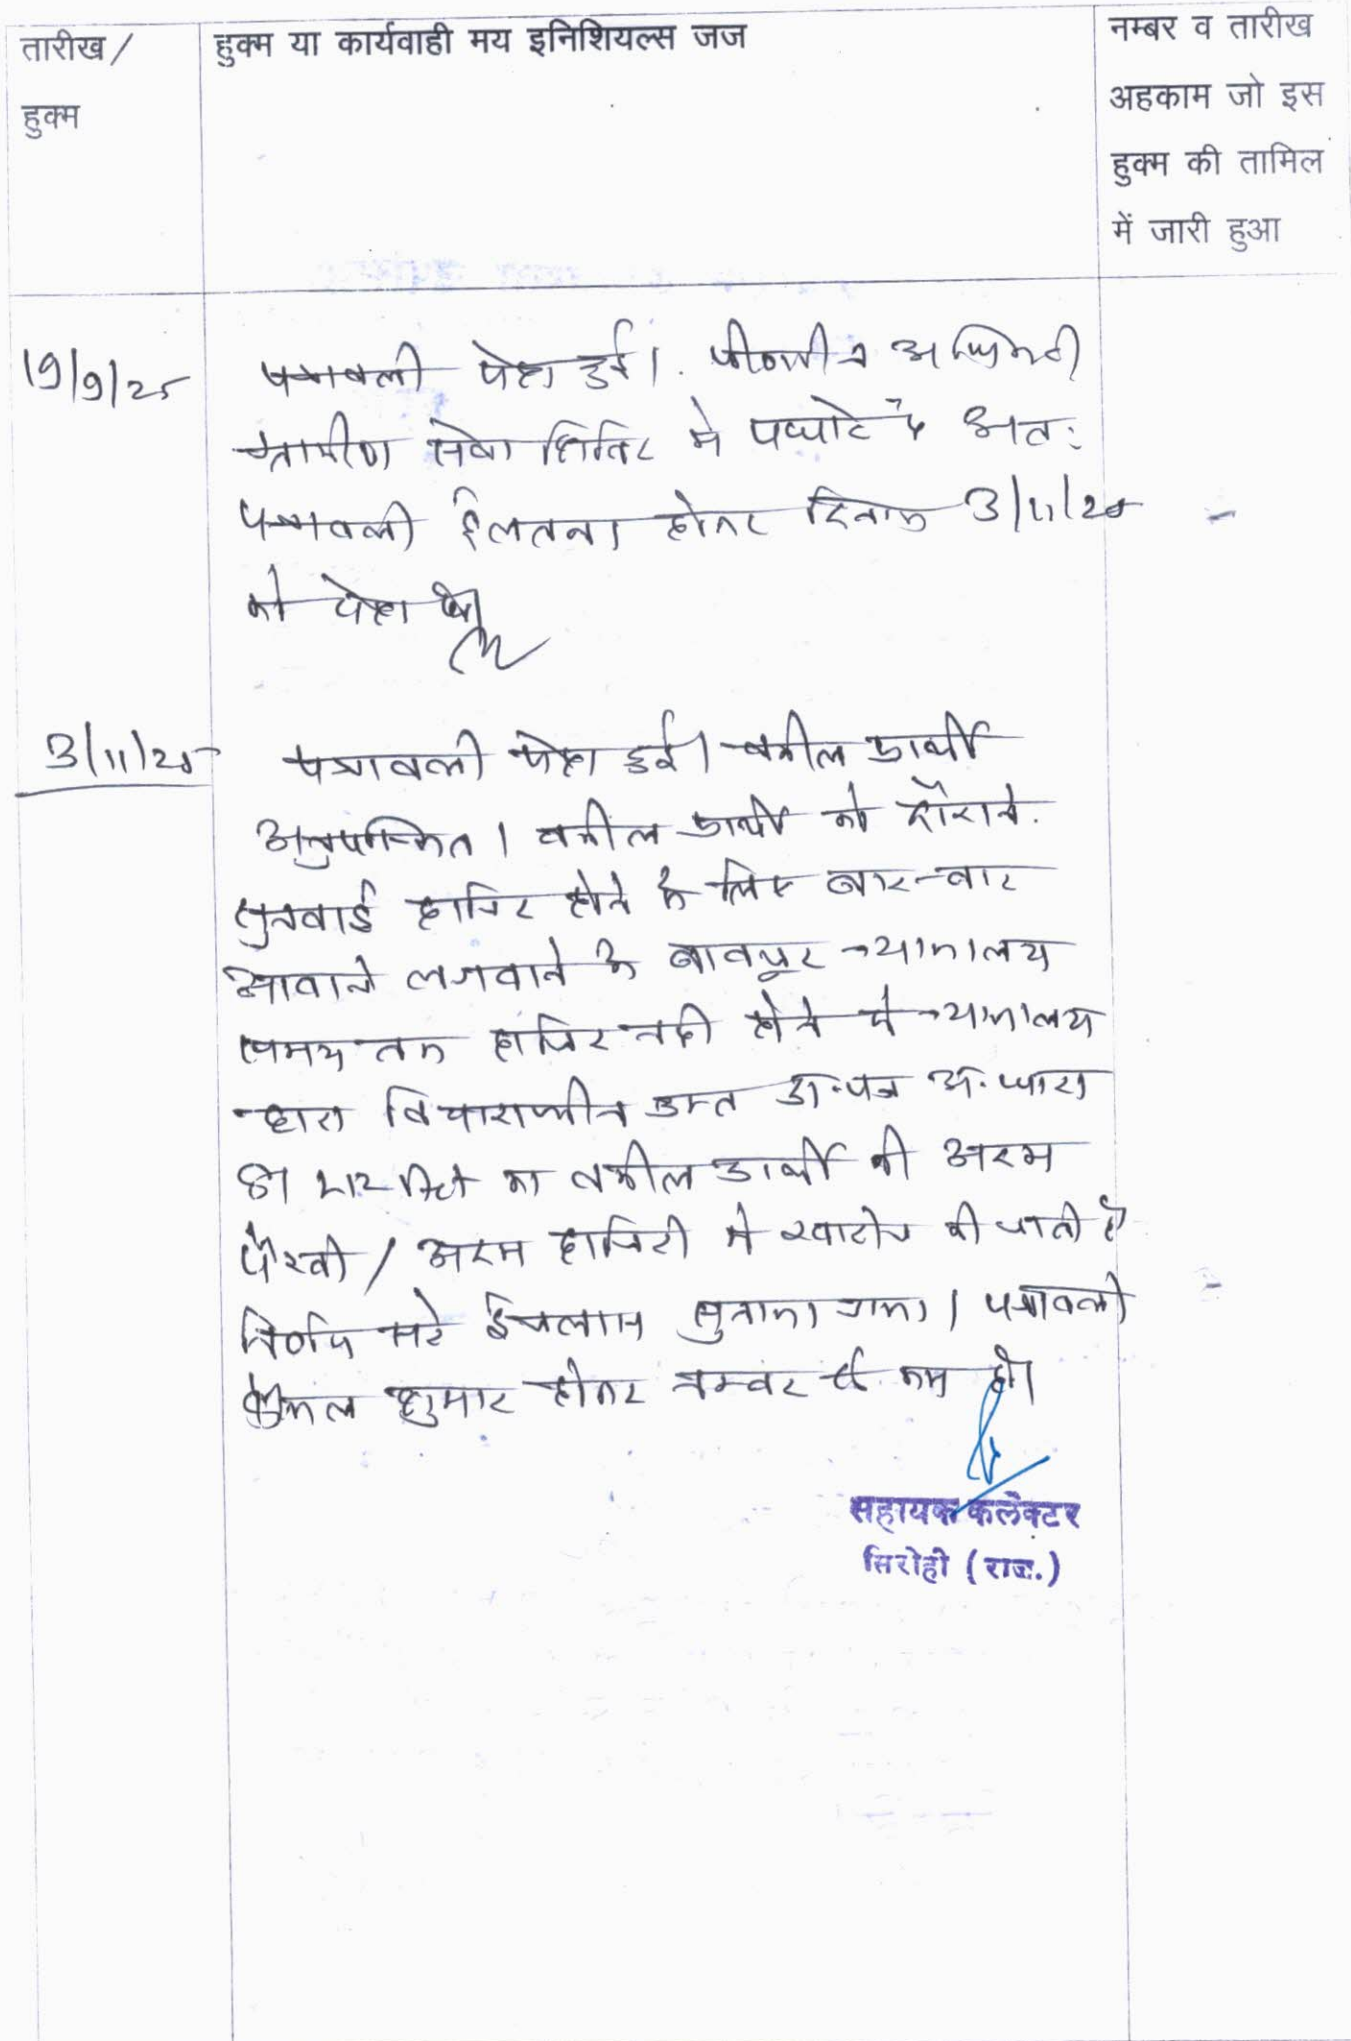 तारीख /
हुक्म
हुक्म या कार्यवाही मय इनिशियल्स जज
नम्बर व तारीख
अहकाम जो इस
हुक्म की तामिल
में जारी हुआ
19/9/25
पत्रावली पेश हुई।
ग्रामीण सेवा शिविर में पधारे है अतः
पत्रावली ईलतवा होकर दिनांक 3/11/25
को पेश हो
3/11/25
पत्रावली पेश हुई। वकील प्रार्थी
अनुपस्थित। वकील प्रार्थी को दौराने
सुनवाई हाजिर होने के लिए बार-बार
आवाजे लगवाने के बावजूद न्यायालय
समय तक हाजिर नही होने से न्यायालय
द्वारा विचाराधीन उक्त प्रा.पत्र अ. धारा
का वकील प्रार्थी की अदम
पैरवी / अदम हाजिरी में खारीज की जाती है
निर्णय सरे ईजलास सुनाया गया। पत्रावली
फैसल शुमार होकर नम्बर से कम हो।
सहायक कलेक्टर
सिरोही (राज.)